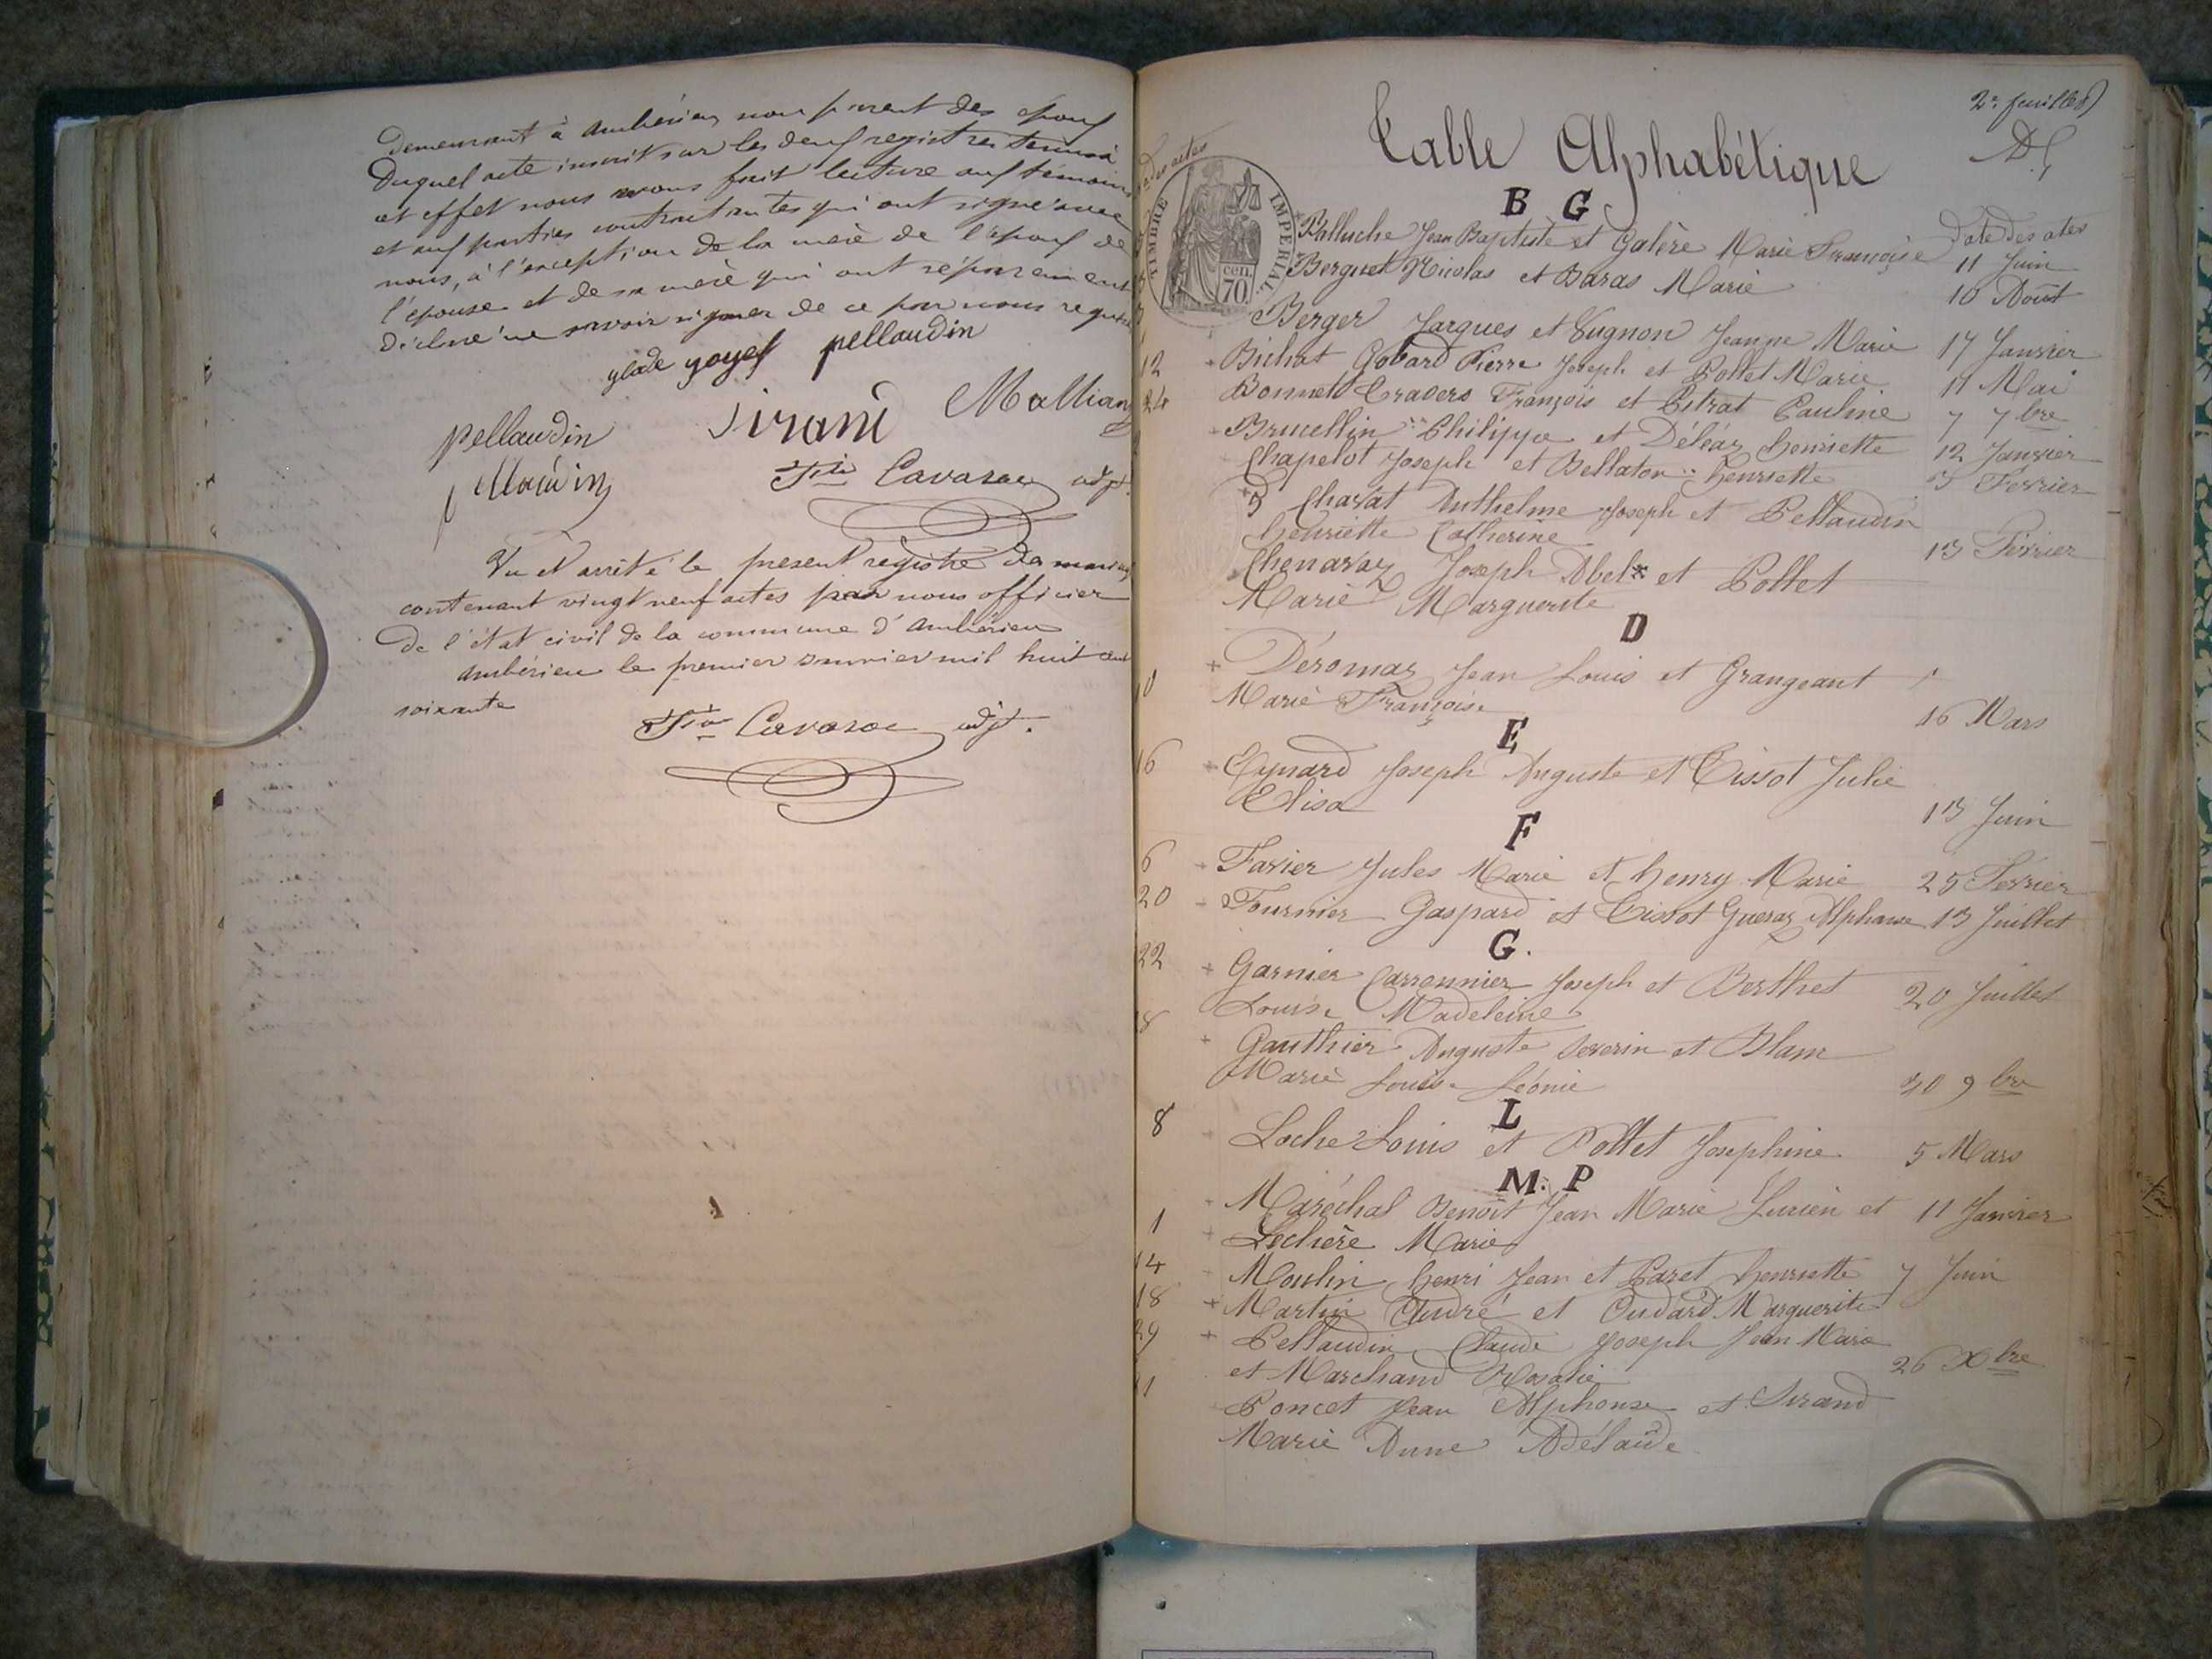 demeurant à Ambérieu non parent des époux
Duquel acte inscrit sur les deux registres tenus à
cet effet nous avons fait lecture aux témoins
et aux parties contractantes qui ont signé avec
nous, à l'exception de la mère de l'époux de
l'épouse et de sa mère qui ont séparément
déclaré ne savoir signer de ce par nous requis
goyet pellaudin
pellaudin Sirand
Cavarac adjt.
Vu et arrêté le présent registre da
contenant vingt neuf actes par nous officier
de l'état civil de la commune d'Ambérieu
Ambérieu le premier Janvier mil huit cent
soixante
Cavarac adjt.
2e feuillet
Table Alphabétique
des actes
TIMBRE IMPERIAL
cen. 70
B G
Date des actes
Balluche Jean Baptiste et Galère Marie Françoise 11 Juin
Berguet Nicolas et Baras Marie 10 Août
Berger Jacques et Vugnon Jeanne Marie 17 Janvier
12 Bichat Gobard Pierre Joseph et Pollet Marie 11 Mai
24 Bonnet Travers François et Pitrat Pauline 7 7bre
Brucellin Philippe et Déléaz henriette 12 Janvier
Chapelot Joseph et Bellaton henriette 3 Fevrier
5 Chavat Anthelme Joseph et Pellaudin
henriette Catherine
13 Février
Chenavaz Joseph Abel et Pollet
Marie Marguerite
D
10 Déromaz Jean Louis et Grangeant
Marie Françoise
16 Mars
E
16 Eynard Joseph Auguste et Tissot Julie
Elisa
13 Juin
F
6 Favier Jules Marie et henry Marie 25 Février
20 Fournier Gaspard et Tissot Gueraz Alphonse 13 Juillet
G.
22 Garnier Carronnier Joseph et Berthet 20 Juillet
Louise Madeleine
Gauthier Auguste Severin et Blanc
Marie Louise Léonie
30 9bre
L
8 Loche Louis et Pollet Josephine 5 Mars
M. P
1 Maréchal Benoit Jean Marie Lucien et 11 Janvier
Lechère Marie
14 Moulin henri Jean et Paret henriette 7 Juin
18 Martin André et Oudard Marguerite
29 Pellaudin Claude Joseph Jean Marie
et Marchand Rosalie
26 Xbre
Poncet Jean Alphonse et Sirand
Marie Anne Adélaïde